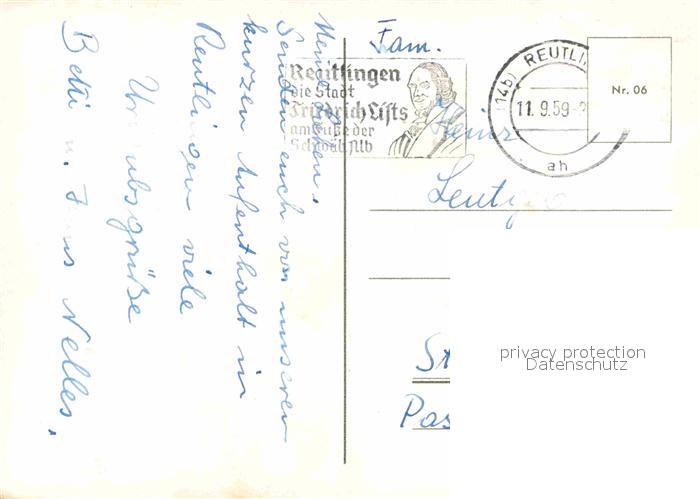 Senden euch von unseren
kurzen Aufenthalt in
Reutlingen viele
Urlaubsgrüße
Betti u. Nelles.
Reutlingen
die Stadt
Friedrich Lists
am Fuße der
Schwäb. Alb
(14b) REUTLI
11.9.59
ah
Nr. 06
Fam.
Heinz
St
Pas
privacy protection
Datenschutz